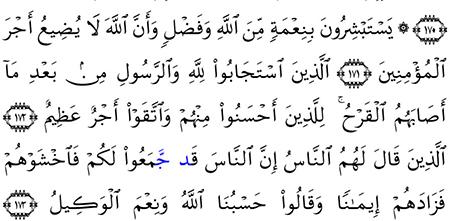 ﴿١٧٠﴾ ۞ يَسْتَبْشِرُونَ بِنِعْمَةٍ مِّنَ ٱللَّهِ وَفَضْلٍ وَأَنَّ ٱللَّهَ لَا يُضِيعُ أَجْرَ
ٱلْمُؤْمِنِينَ ﴿١٧١﴾ ٱلَّذِينَ ٱسْتَجَابُوا۟ لِلَّهِ وَٱلرَّسُولِ مِنۢ بَعْدِ مَآ
أَصَابَهُمُ ٱلْقَرْحُ ۚ لِلَّذِينَ أَحْسَنُوا۟ مِنْهُمْ وَٱتَّقَوْا۟ أَجْرٌ عَظِيمٌ ﴿١٧٢﴾
ٱلَّذِينَ قَالَ لَهُمُ ٱلنَّاسُ إِنَّ ٱلنَّاسَ قَد جَّمَعُوا۟ لَكُمْ فَٱخْشَوْهُمْ
فَزَادَهُمْ إِيمَـٰنًا وَقَالُوا۟ حَسْبُنَا ٱللَّهُ وَنِعْمَ ٱلْوَكِيلُ ﴿١٧٣﴾